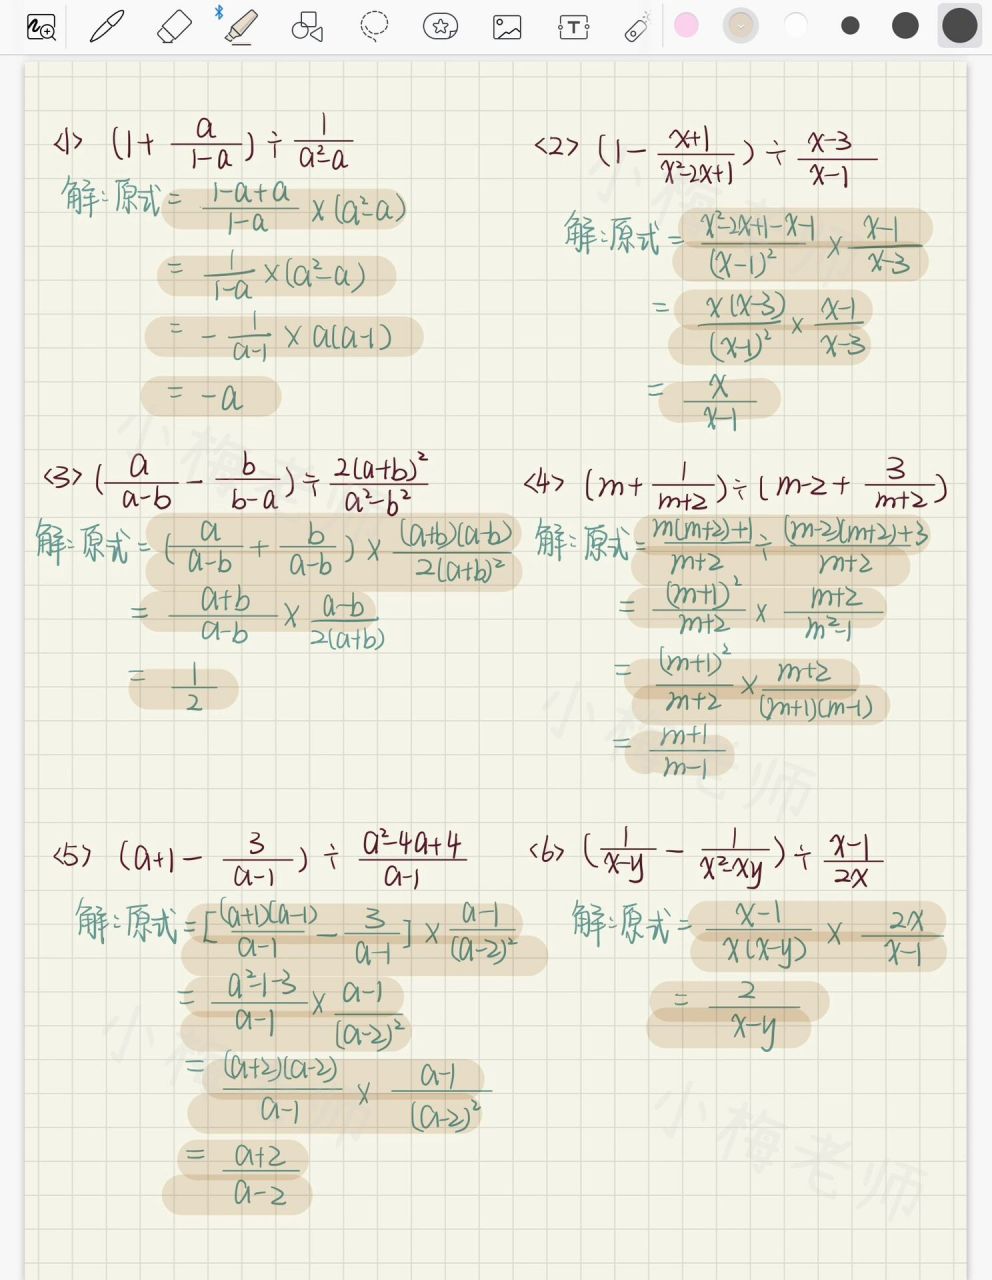 <1> (1+ a/(1-a)) ÷ 1/(a²-a)
解:原式= (1-a+a)/(1-a) ×(a²-a)
= 1/(1-a) ×(a²-a)
= - 1/(a-1) × a(a-1)
= -a
<2> (1- (x+1)/(x²-2x+1)) ÷ (x-3)/(x-1)
解:原式= (x²-2x+1-x-1)/(x-1)² × (x-1)/(x-3)
= x(x-3)/(x-1)² × (x-1)/(x-3)
= x/(x-1)
<3> (a/(a-b) - b/(b-a)) ÷ 2(a+b)²/(a²-b²)
解:原式= (a/(a-b) + b/(a-b)) × (a+b)(a-b)/2(a+b)²
= (a+b)/(a-b) × (a-b)/2(a+b)
= 1/2
<4> (m+ 1/(m+2)) ÷ (m-2+ 3/(m+2))
解:原式= (m(m+2)+1)/(m+2) ÷ ((m-2)(m+2)+3)/(m+2)
= (m+1)²/(m+2) × (m+2)/(m²-1)
= (m+1)²/(m+2) × (m+2)/(m+1)(m-1)
= (m+1)/(m-1)
<5> (a+1- 3/(a-1)) ÷ (a²-4a+4)/(a-1)
解:原式= [(a+1)(a-1)/(a-1) - 3/(a-1)] × (a-1)/(a-2)²
= (a²-1-3)/(a-1) × (a-1)/(a-2)²
= (a+2)(a-2)/(a-1) × (a-1)/(a-2)²
= (a+2)/(a-2)
<6> (1/(x-y) - 1/(x²-xy)) ÷ (x-1)/2x
解:原式= (x-1)/x(x-y) × 2x/(x-1)
= 2/(x-y)
小梅老师
小梅老师
小梅老师
小梅老师
小梅老师